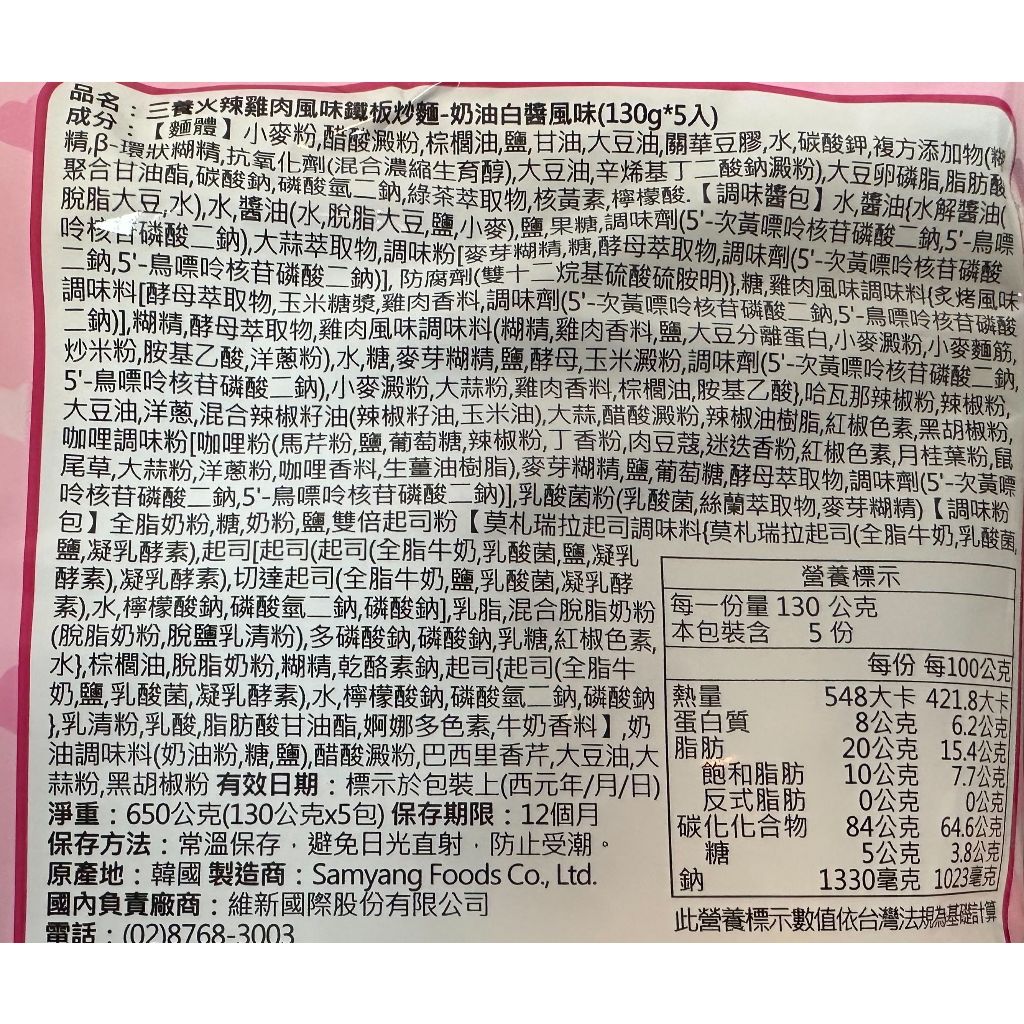 品名：三養火辣雞肉風味鐵板炒麵-奶油白醬風味(130g*5入)
成分：【麵體】小麥粉,醋酸澱粉,棕櫚油,鹽,甘油,大豆油,關華豆膠,水,碳酸鉀,複方添加物(糊
精,β-環狀糊精,抗氧化劑(混合濃縮生育醇),大豆油,辛烯基丁二酸鈉澱粉),大豆卵磷脂,脂肪酸
聚合甘油酯,碳酸鈉,磷酸氫二鈉,綠茶萃取物,核黃素,檸檬酸.【調味醬包】水,醬油{水解醬油(
脫脂大豆,水),水,醬油(水,脫脂大豆,鹽,小麥),鹽,果糖,調味劑(5'-次黃嘌呤核苷磷酸二鈉,5'-鳥嘌
呤核苷磷酸二鈉),大蒜萃取物,調味粉[麥芽糊精,糖,酵母萃取物,調味劑(5'-次黃嘌呤核苷磷酸
二鈉,5'-鳥嘌呤核苷磷酸二鈉)], 防腐劑(雙十二烷基硫酸硫胺明)},糖,雞肉風味調味料{炙烤風味
調味料[酵母萃取物,玉米糖漿,雞肉香料,調味劑(5'-次黃嘌呤核苷磷酸二鈉,5'-鳥嘌呤核苷磷酸
二鈉)],糊精,酵母萃取物,雞肉風味調味料(糊精,雞肉香料,鹽,大豆分離蛋白,小麥澱粉,小麥麵筋,
炒米粉,胺基乙酸,洋蔥粉),水,糖,麥芽糊精,鹽,酵母,玉米澱粉,調味劑(5'-次黃嘌呤核苷磷酸二鈉,
5'-鳥嘌呤核苷磷酸二鈉),小麥澱粉,大蒜粉,雞肉香料,棕櫚油,胺基乙酸},哈瓦那辣椒粉,辣椒粉,
大豆油,洋蔥,混合辣椒籽油(辣椒籽油,玉米油),大蒜,醋酸澱粉,辣椒油樹脂,紅椒色素,黑胡椒粉,
咖哩調味粉[咖哩粉(馬芹粉,鹽,葡萄糖,辣椒粉,丁香粉,肉豆蔻,迷迭香粉,紅椒色素,月桂葉粉,鼠
尾草,大蒜粉,洋蔥粉,咖哩香料,生薑油樹脂),麥芽糊精,鹽,葡萄糖,酵母萃取物,調味劑(5'-次黃嘌
呤核苷磷酸二鈉,5'-鳥嘌呤核苷磷酸二鈉)],乳酸菌粉(乳酸菌,絲蘭萃取物,麥芽糊精)【調味粉
包】全脂奶粉,糖,奶粉,鹽,雙倍起司粉【莫札瑞拉起司調味料{莫札瑞拉起司(全脂牛奶,乳酸菌,
鹽,凝乳酵素),起司[起司(起司(全脂牛奶,乳酸菌,鹽,凝乳
酵素),凝乳酵素),切達起司(全脂牛奶,鹽,乳酸菌,凝乳酵
素),水,檸檬酸鈉,磷酸氫二鈉,磷酸鈉],乳脂,混合脫脂奶粉
(脫脂奶粉,脫鹽乳清粉),多磷酸鈉,磷酸鈉,乳糖,紅椒色素,
水},棕櫚油,脫脂奶粉,糊精,乾酪素鈉,起司{起司(全脂牛
奶,鹽,乳酸菌,凝乳酵素),水,檸檬酸鈉,磷酸氫二鈉,磷酸鈉
},乳清粉,乳酸,脂肪酸甘油酯,婀娜多色素,牛奶香料】,奶
油調味料(奶油粉,糖,鹽),醋酸澱粉,巴西里香芹,大豆油,大
蒜粉,黑胡椒粉 有效日期：標示於包裝上(西元年/月/日)
淨重：650公克(130公克x5包) 保存期限：12個月
保存方法：常溫保存，避免日光直射，防止受潮。
原產地：韓國 製造商：Samyang Foods Co., Ltd.
國內負責廠商：維新國際股份有限公司
電話：(02)8768-3003
營養標示
每一份量 130 公克
本包裝含 5 份
每份 每100公克
熱量 548大卡 421.8大卡
蛋白質 8公克 6.2公克
脂肪 20公克 15.4公克
飽和脂肪 10公克 7.7公克
反式脂肪 0公克 0公克
碳化化合物 84公克 64.6公克
糖 5公克 3.8公克
鈉 1330毫克 1023毫克
此營養標示數值依台灣法規為基礎計算